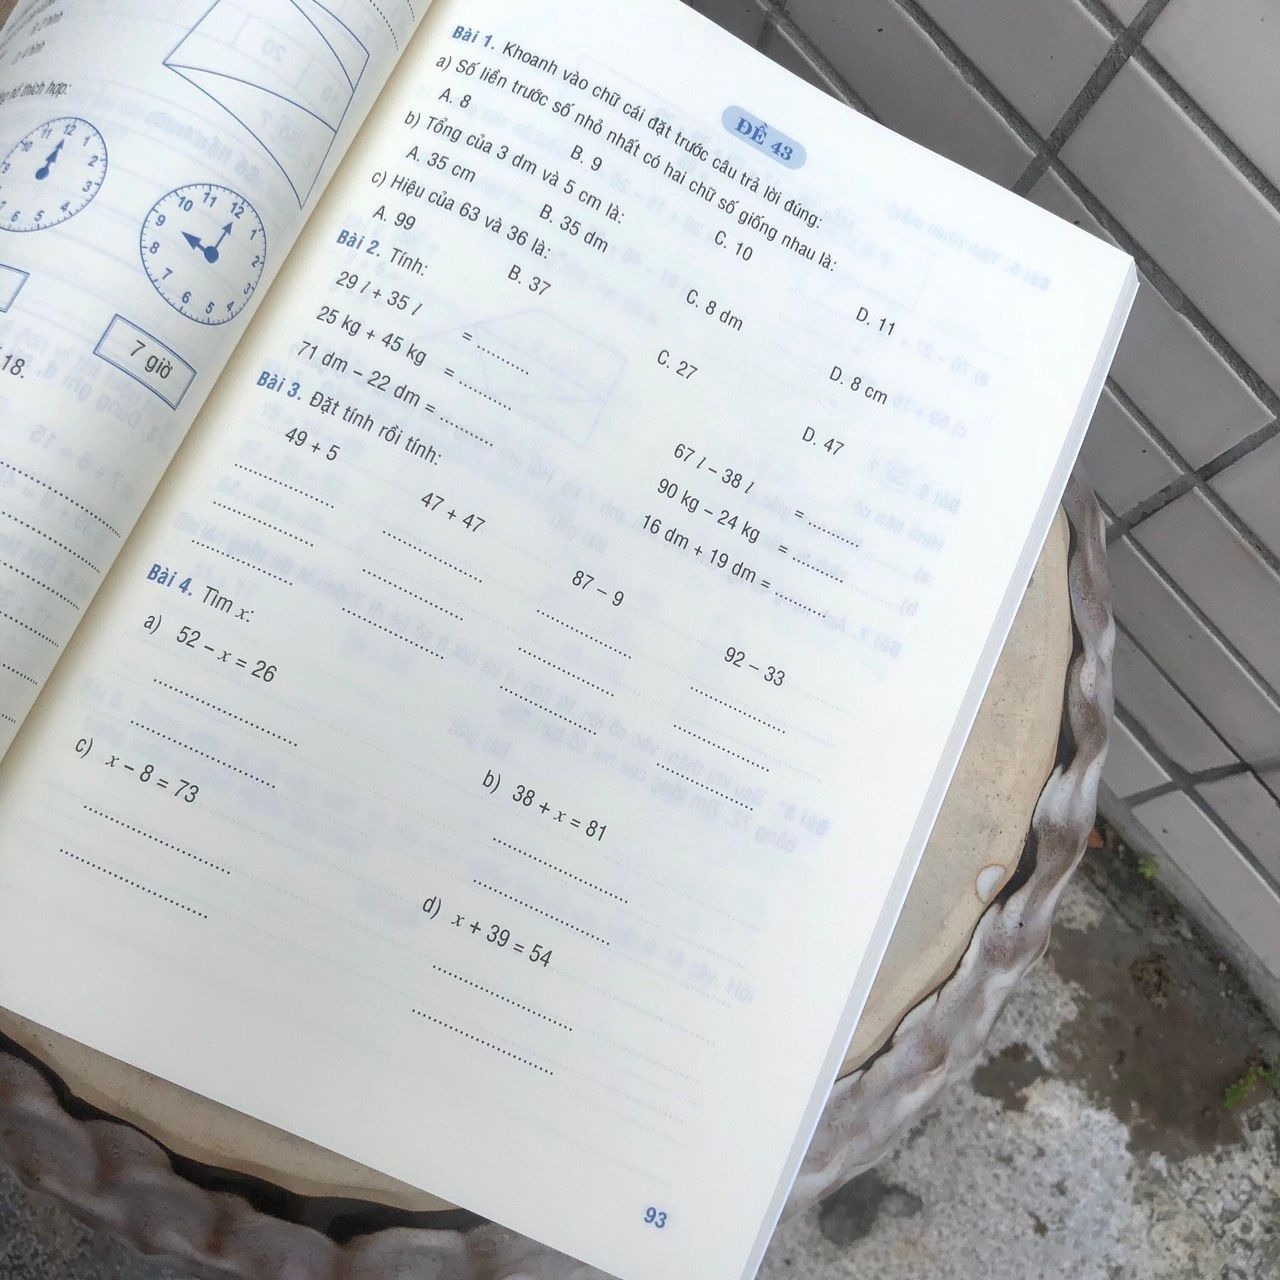 ng hồ thích hợp:
7 giờ
18.
ĐỀ 43
Bài 1. Khoanh vào chữ cái đặt trước câu trả lời đúng:
a) Số liền trước số nhỏ nhất có hai chữ số giống nhau là:
A. 8 B. 9 C. 10 D. 11
b) Tổng của 3 dm và 5 cm là:
A. 35 cm B. 35 dm C. 8 dm D. 8 cm
c) Hiệu của 63 và 36 là:
A. 99 B. 37 C. 27 D. 47
Bài 2. Tính:
29 l + 35 l = .......... 67 l – 38 l = ..........
25 kg + 45 kg = .......... 90 kg – 24 kg = ..........
71 dm – 22 dm = .......... 16 dm + 19 dm = ..........
Bài 3. Đặt tính rồi tính:
49 + 5 47 + 47 87 – 9 92 – 33
Bài 4. Tìm x:
a) 52 – x = 26 b) 38 + x = 81
c) x – 8 = 73 d) x + 39 = 54
93